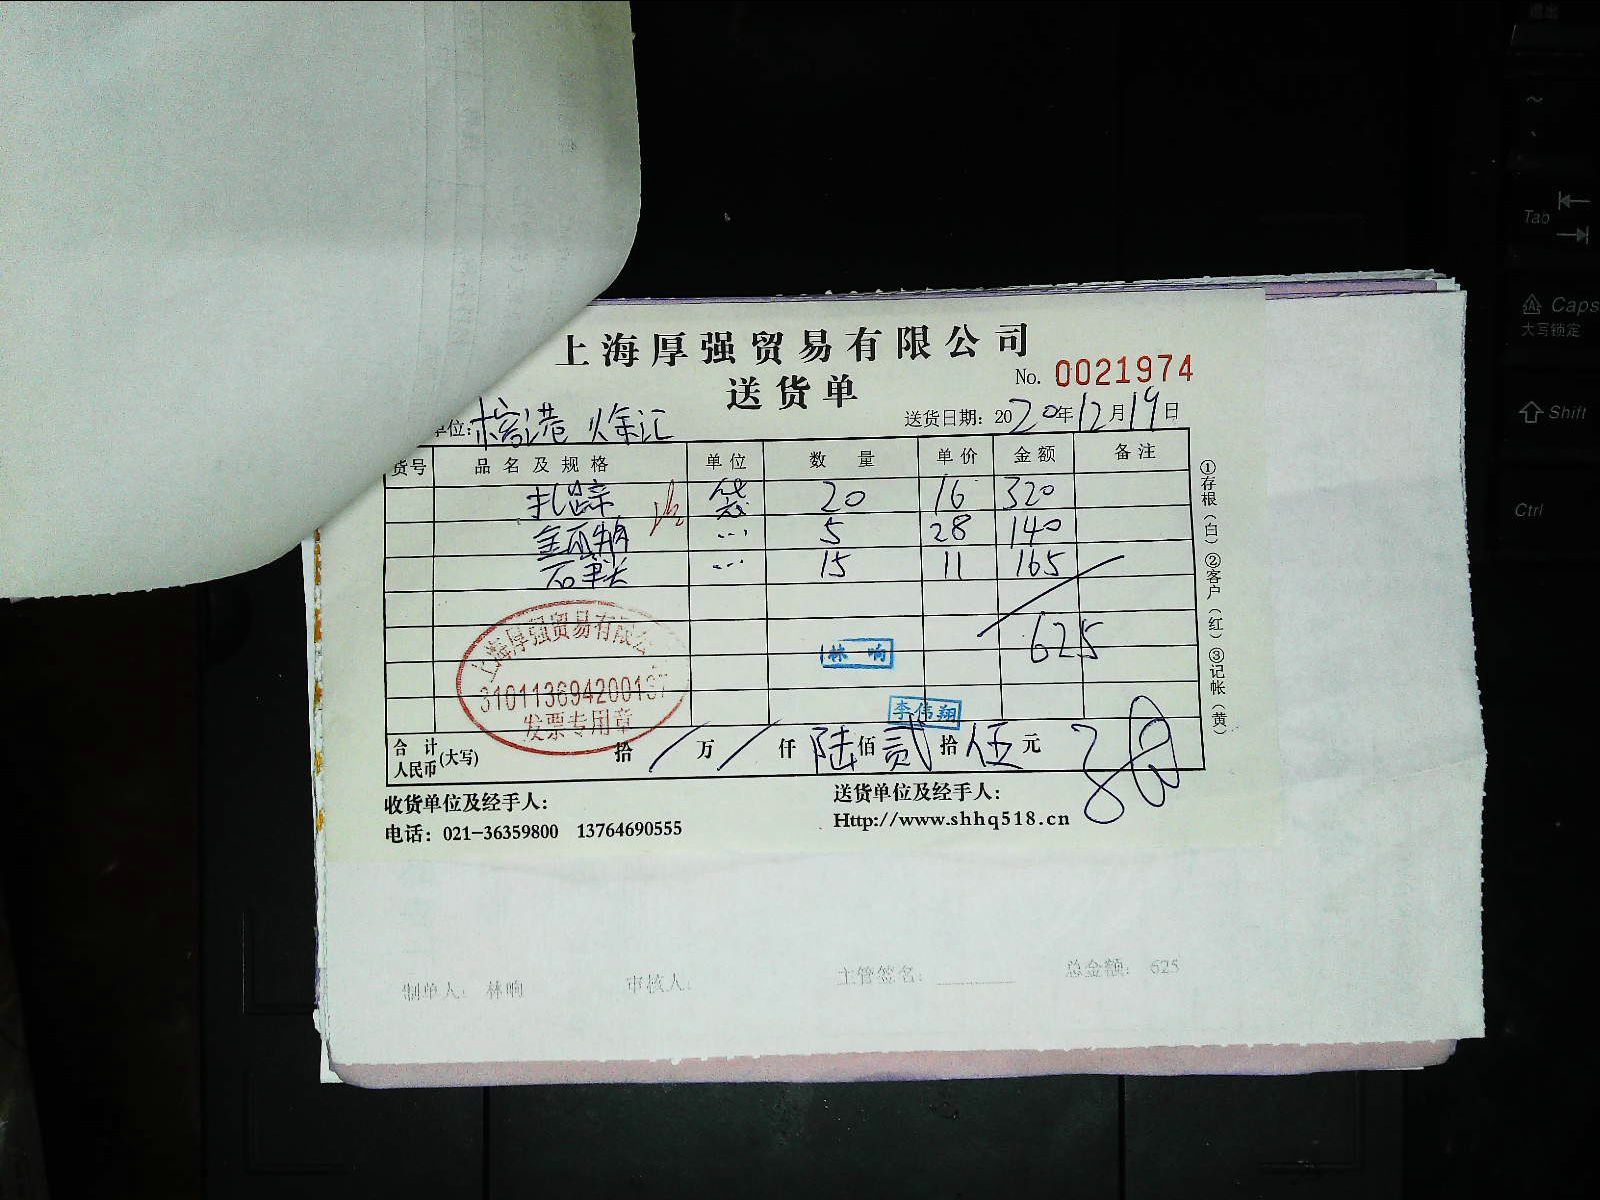 上海厚强贸易有限公司
送货单
No. 0021974
单位: 榕港 徐汇
送货日期: 2020年12月19日
货号 品名及规格 单位 数量 单价 金额 备注
扎蹄 袋 20 16 320
5 28 140
15 11 165
625
上海厚强贸易有限公
发票专用章
林响
李伟翔
合计人民币(大写) 拾 / 万 / 仟 陆佰贰拾伍元
收货单位及经手人:
送货单位及经手人:
电话: 021-36359800 13764690555
Http://www.shhq518.cn
①存根(白)②客户(红)③记帐(黄)
制单人: 林响 审核人: 主管签名: 总金额: 625
Tab
Caps
大写锁定
Shift
Ctrl